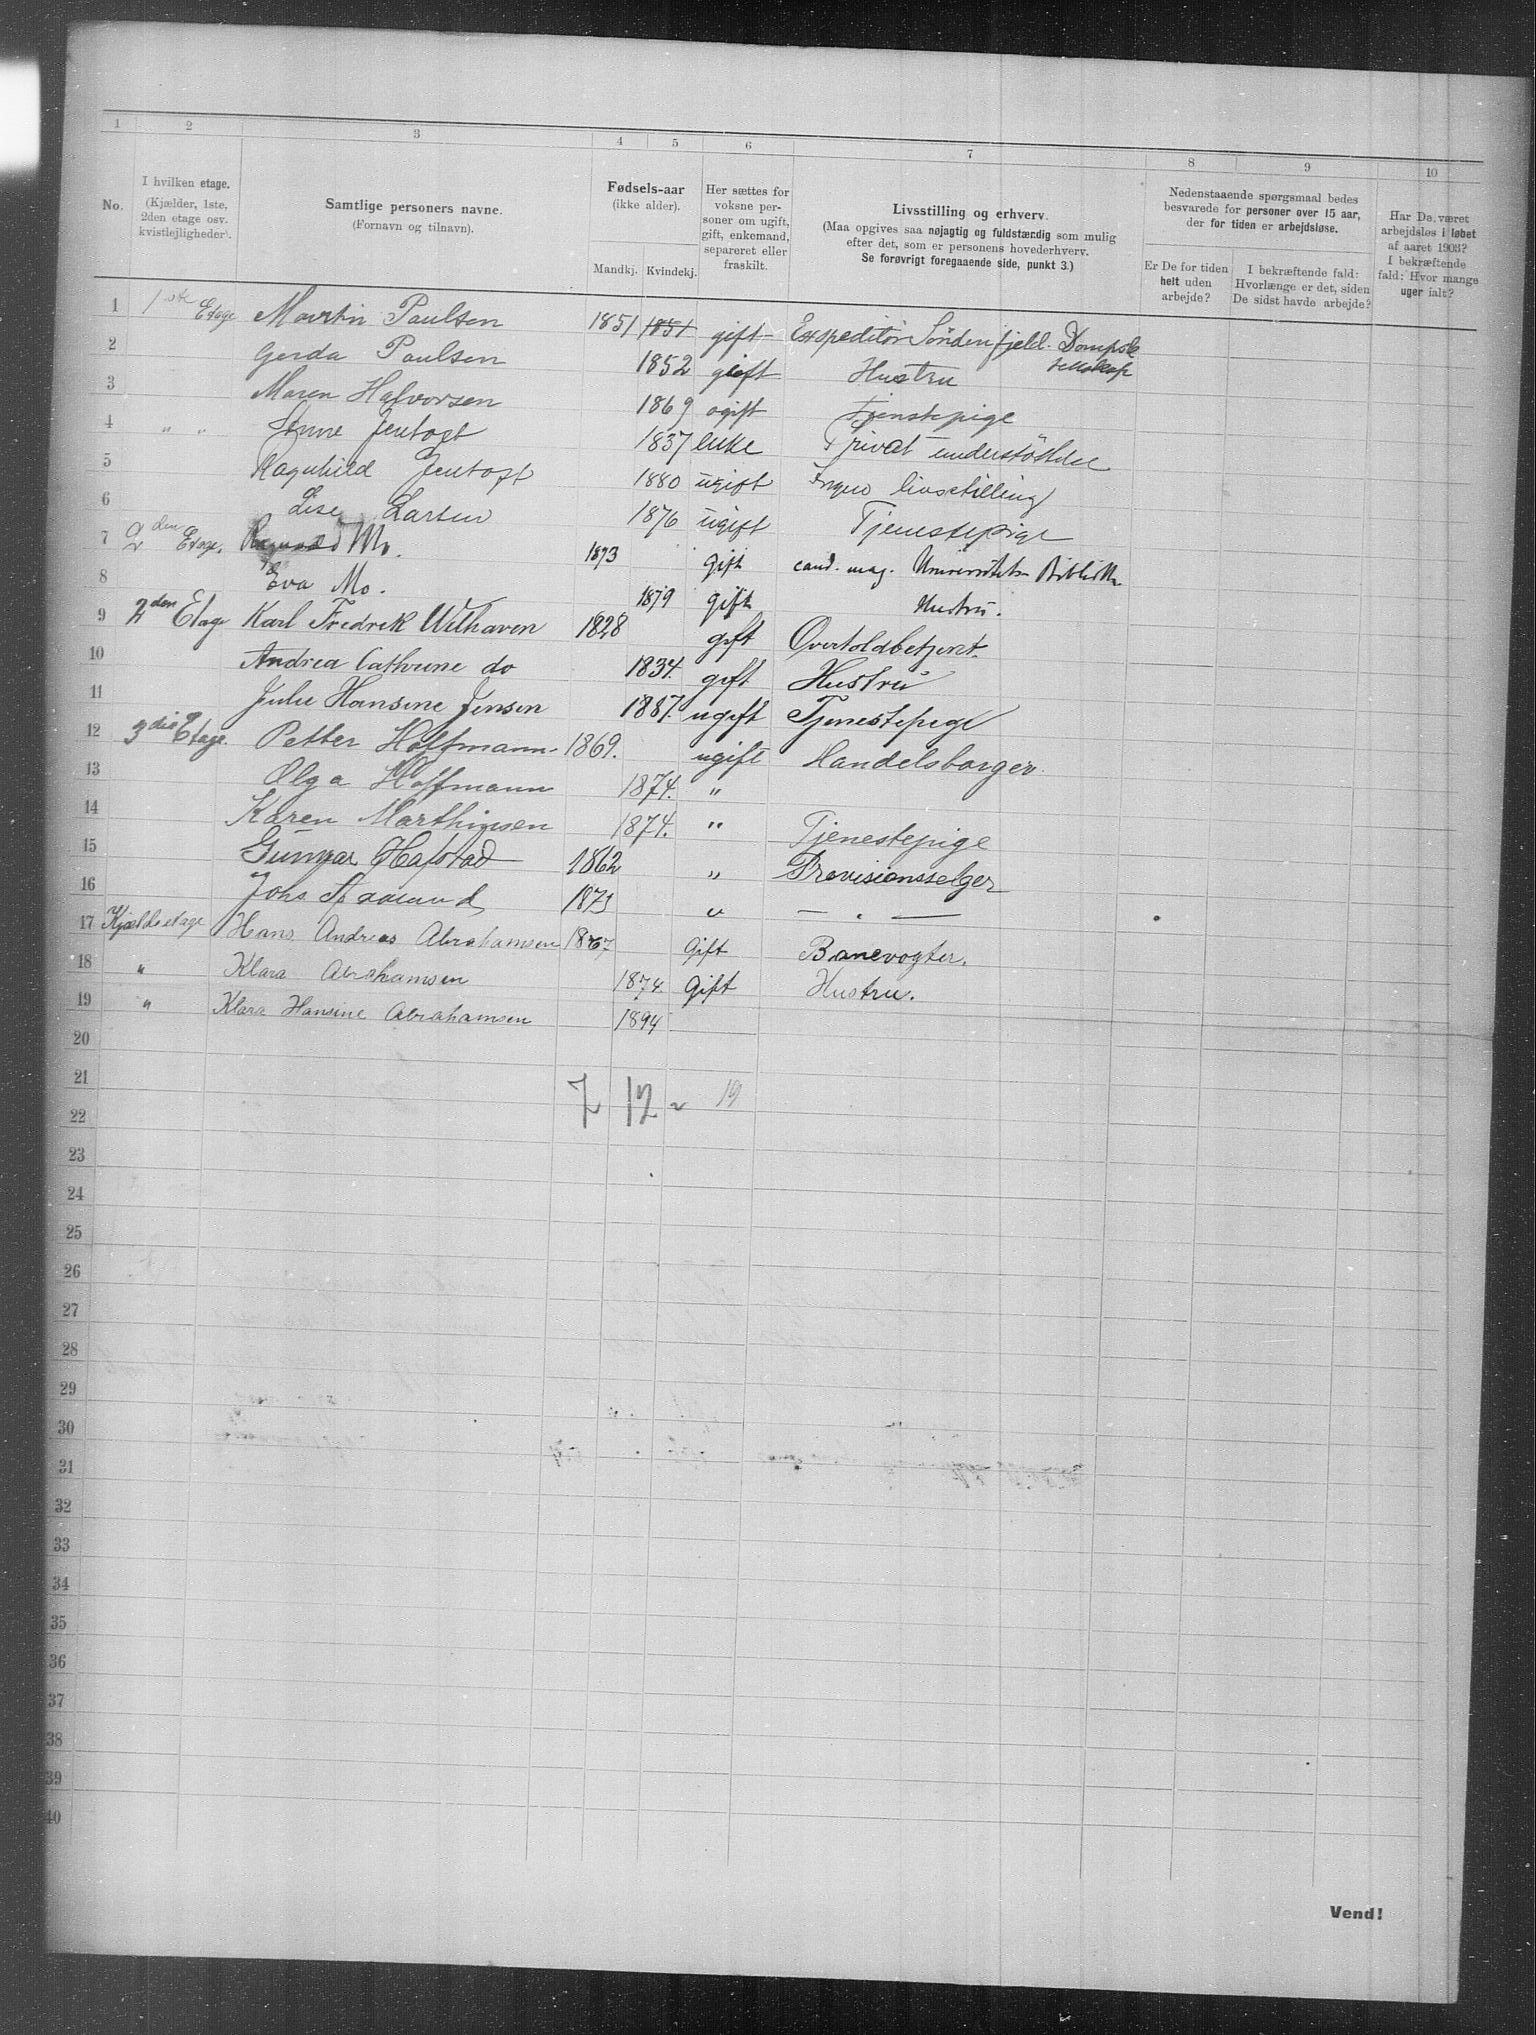 1 2 3 4 5 6 7 8 9 10
No.
I hvilken etage.
(Kjælder, 1ste,
2den etage osv.
kvistlejligheder).
Samtlige personers navne.
(Fornavn og tilnavn).
Fødsels-aar
(ikke alder).
Mandkj. Kvindekj.
Her sættes for
voksne per-
soner om ugift,
gift, enkemand,
separeret eller
fraskilt.
Livsstilling og erhverv.
(Maa opgives saa nøjagtig og fuldstændig som mulig
efter det, som er personens hovederhverv.
Se forøvrigt foregaaende side, punkt 3.)
Nedenstaaende spørgsmaal bedes
besvarede for personer over 15 aar,
der for tiden er arbejdsløse.
Er De for tiden
helt uden
arbejde?
I bekræftende fald:
Hvorlænge er det, siden
De sidst havde arbejde?
Har De været
arbejdsløs i løbet
af aaret 1903?
I bekræftende
fald: Hvor mange
uger ialt?
1 1ste Etage Martin Paulsen 1851 1851 gift Expeditør Søndenfjeld. Dampsk
selskap
2 Gerda Paulsen 1852 gift Hustru
3 Maren Halvorsen 1869 ugift Tjenstepige
4 " " Jentoft 1837 enke Privat understøttelse
5 Ragnhild Jentoft 1880 ugift Ingen livsstilling
6 Lise Larsen 1876 ugift Tjenestepige
7 2den Etage. Mo. 1873 gift cand. mag. Universitets Biblioth
8 Eva Mo. 1879 gift Hustru.
9 2den Etage Karl Fredrik Wilhaven 1828 gift Overtoldbetjent.
10 Andrea Cathrine do 1834. gift Hustru
11 Julie Hansine Jensen 1887. ugift Tjenestepige
12 3die Etage. Petter Hoffmann 1869. ugift Handelsborger.
13 Olga Hoffmann 1874. "
14 Karen Marthinsen 1874. " Tjenestepige
15 Gunnar Hafstad 1862 " Provisionsselger
16 Johs. Aasund 1873 " — " —
17 Kjælderetage Hans Andreas Abrahamsen 1867 Gift Banevogter.
18 " Klara Abrahamsen 1874. Gift Hustru.
19 " Klara Hansine Abrahamsen 1894
20
21 7 12 19
22
23
24
25
26
27
28
29
30
31
32
33
34
35
36
37
38
39
40
Vend!